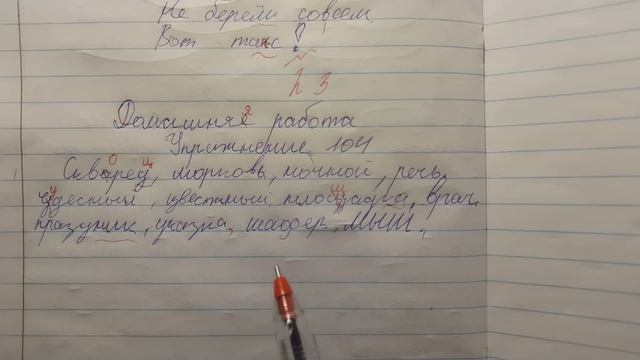 Не берем совсем.
Вот так!
23
Домашняя работа
Упражнение 104
Скворец, морковь, ночной, речь,
чудесный, цветный, площадка, врач,
праздник, указка, шофер, мыш.